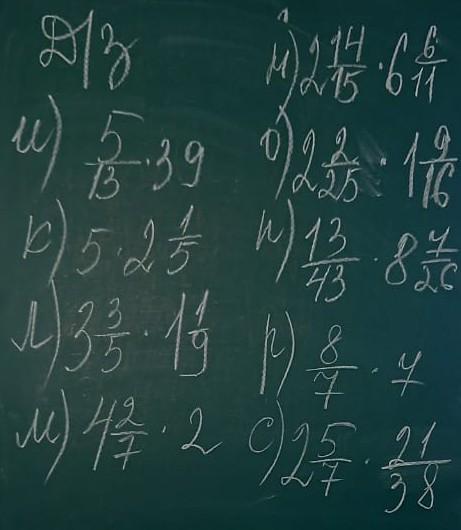 Д/з
и) 5/13 · 39
к) 5 · 2 1/5
л) 3 3/5 · 1 1/9
м) 4 2/7 · 2
н) 2 14/15 · 6 6/11
о) 2 2/25 · 1 9/16
п) 13/43 · 8 7/26
р) 8/7 · 7
с) 2 5/7 · 21/38